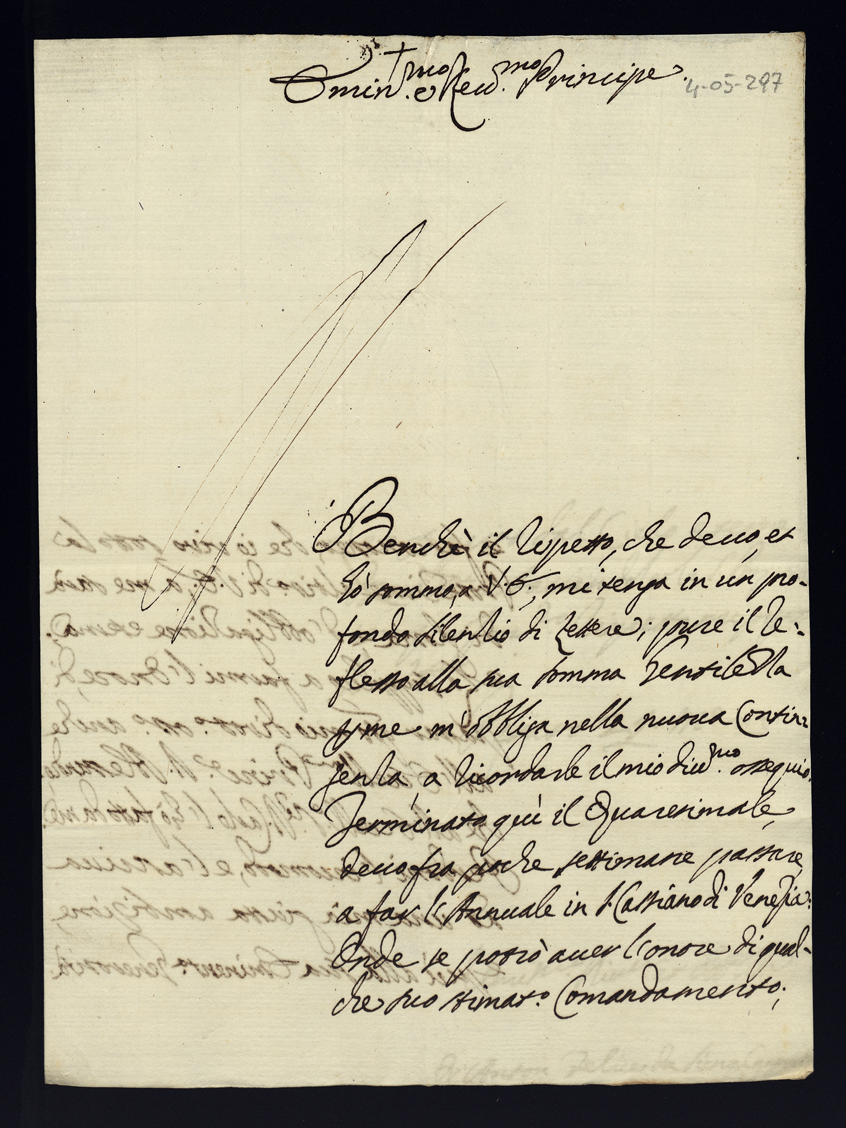 Emin.mo e Reu.mo Principe.
4-05-297
Benchè il rispetto, che deuo, et
hò sommo, a V. E., mi tenga in un pro-
fondo silentio di lettere; pure il re-
flesso alla sua somma gentilezza
m'obbliga nella nuoua Contin-
genza, a ricordarle il mio diu.mo ossequio.
Terminato quì il Quaresimale,
deuo fra poche settimane passare
a far l'Annuale in S. Cassiano di Venezia:
Onde se potrò auer l'onore di qual-
che suo stimat.o Comandamento;